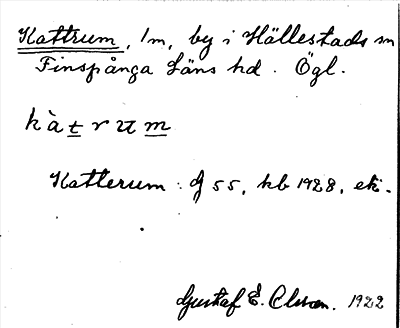 Kattrum, 1 m, by i Hällestads sn
Finspånga läns hd. Ögl.
kàtrum
Katterum: G 55, kb 1928, ek.
Gustaf E. Olsson. 1922